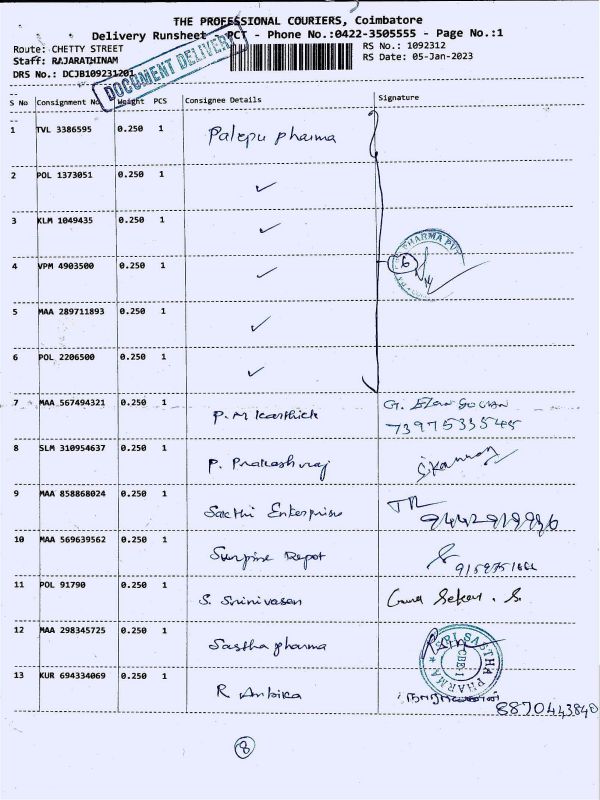 THE PROFESSIONAL COURIERS, Coimbatore
Delivery Runsheet - PCT - Phone No.:0422-3505555 - Page No.:1
Route: CHETTY STREET RS No.: 1092312
Staff: RAJARATHINAM RS Date: 05-Jan-2023
DRS No.: DCJB109231201
DOCUMENT DELIVERY
S No Consignment No Weight PCS Consignee Details Signature
1 TVL 3386595 0.250 1 Palepu pharma
2 POL 1373051 0.250 1 ✓
3 KLM 1049435 0.250 1 ✓
4 VPM 4903500 0.250 1 ✓ 6
PHARMA PVT
5 MAA 289711893 0.250 1 ✓
6 POL 2206500 0.250 1 ✓
7 MAA 567494321 0.250 1 P.M Karthick G.
8 SLM 310954637 0.250 1 P. Prakashraj
9 MAA 858868024 0.250 1 Sakthi Enterprises
10 MAA 569639562 0.250 1
11 POL 91790 0.250 1 S. Srinivasan Sekar. S.
12 MAA 298345725 0.250 1 Sastha pharma
SRI SASTHA PHARMA CBE-1
13 KUR 694334069 0.250 1 R Ambika
8870443840
8